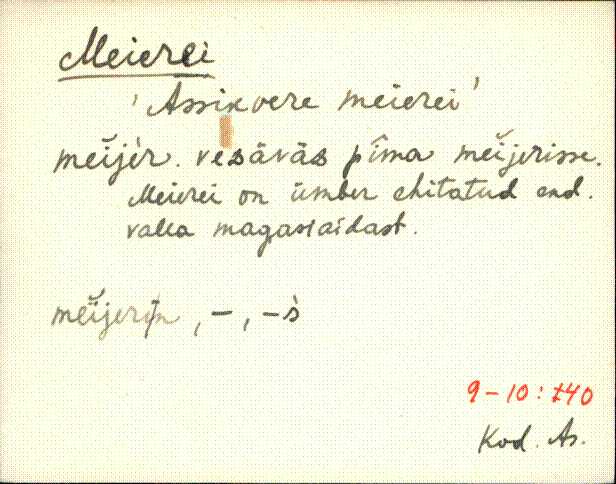 Meierei
'Assikvere meierei'
meĭjèr. vesäväs pîma meĭjerisse.
Meierei on ümber ehitatud end.
valla magasiaidast.
meĭjerin, –, –s̀
9–10: 140
Kod. As.